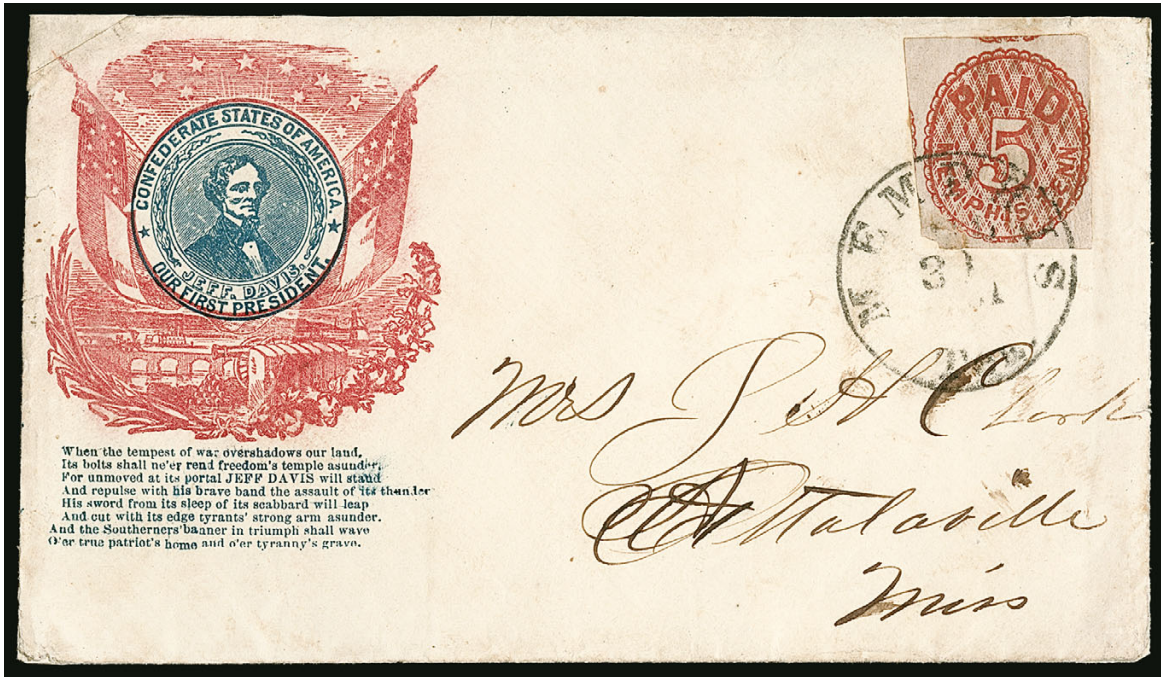 CONFEDERATE STATES OF AMERICA.
JEFF. DAVIS.
OUR FIRST PRESIDENT.
When the tempest of war overshadows our land,
Its bolts shall ne'er rend freedom's temple asunder;
For unmoved at its portal JEFF DAVIS will stand
And repulse with his brave band the assault of its thunder
His sword from its sleep of its scabbard will leap
And cut with its edge tyrants' strong arm asunder.
And the Southerners' banner in triumph shall wave
O'er true patriot's home and o'er tyranny's grave.
PAID
5
MEMPHIS, TENN.
MEMPHIS
Mrs
Attalaville
Miss